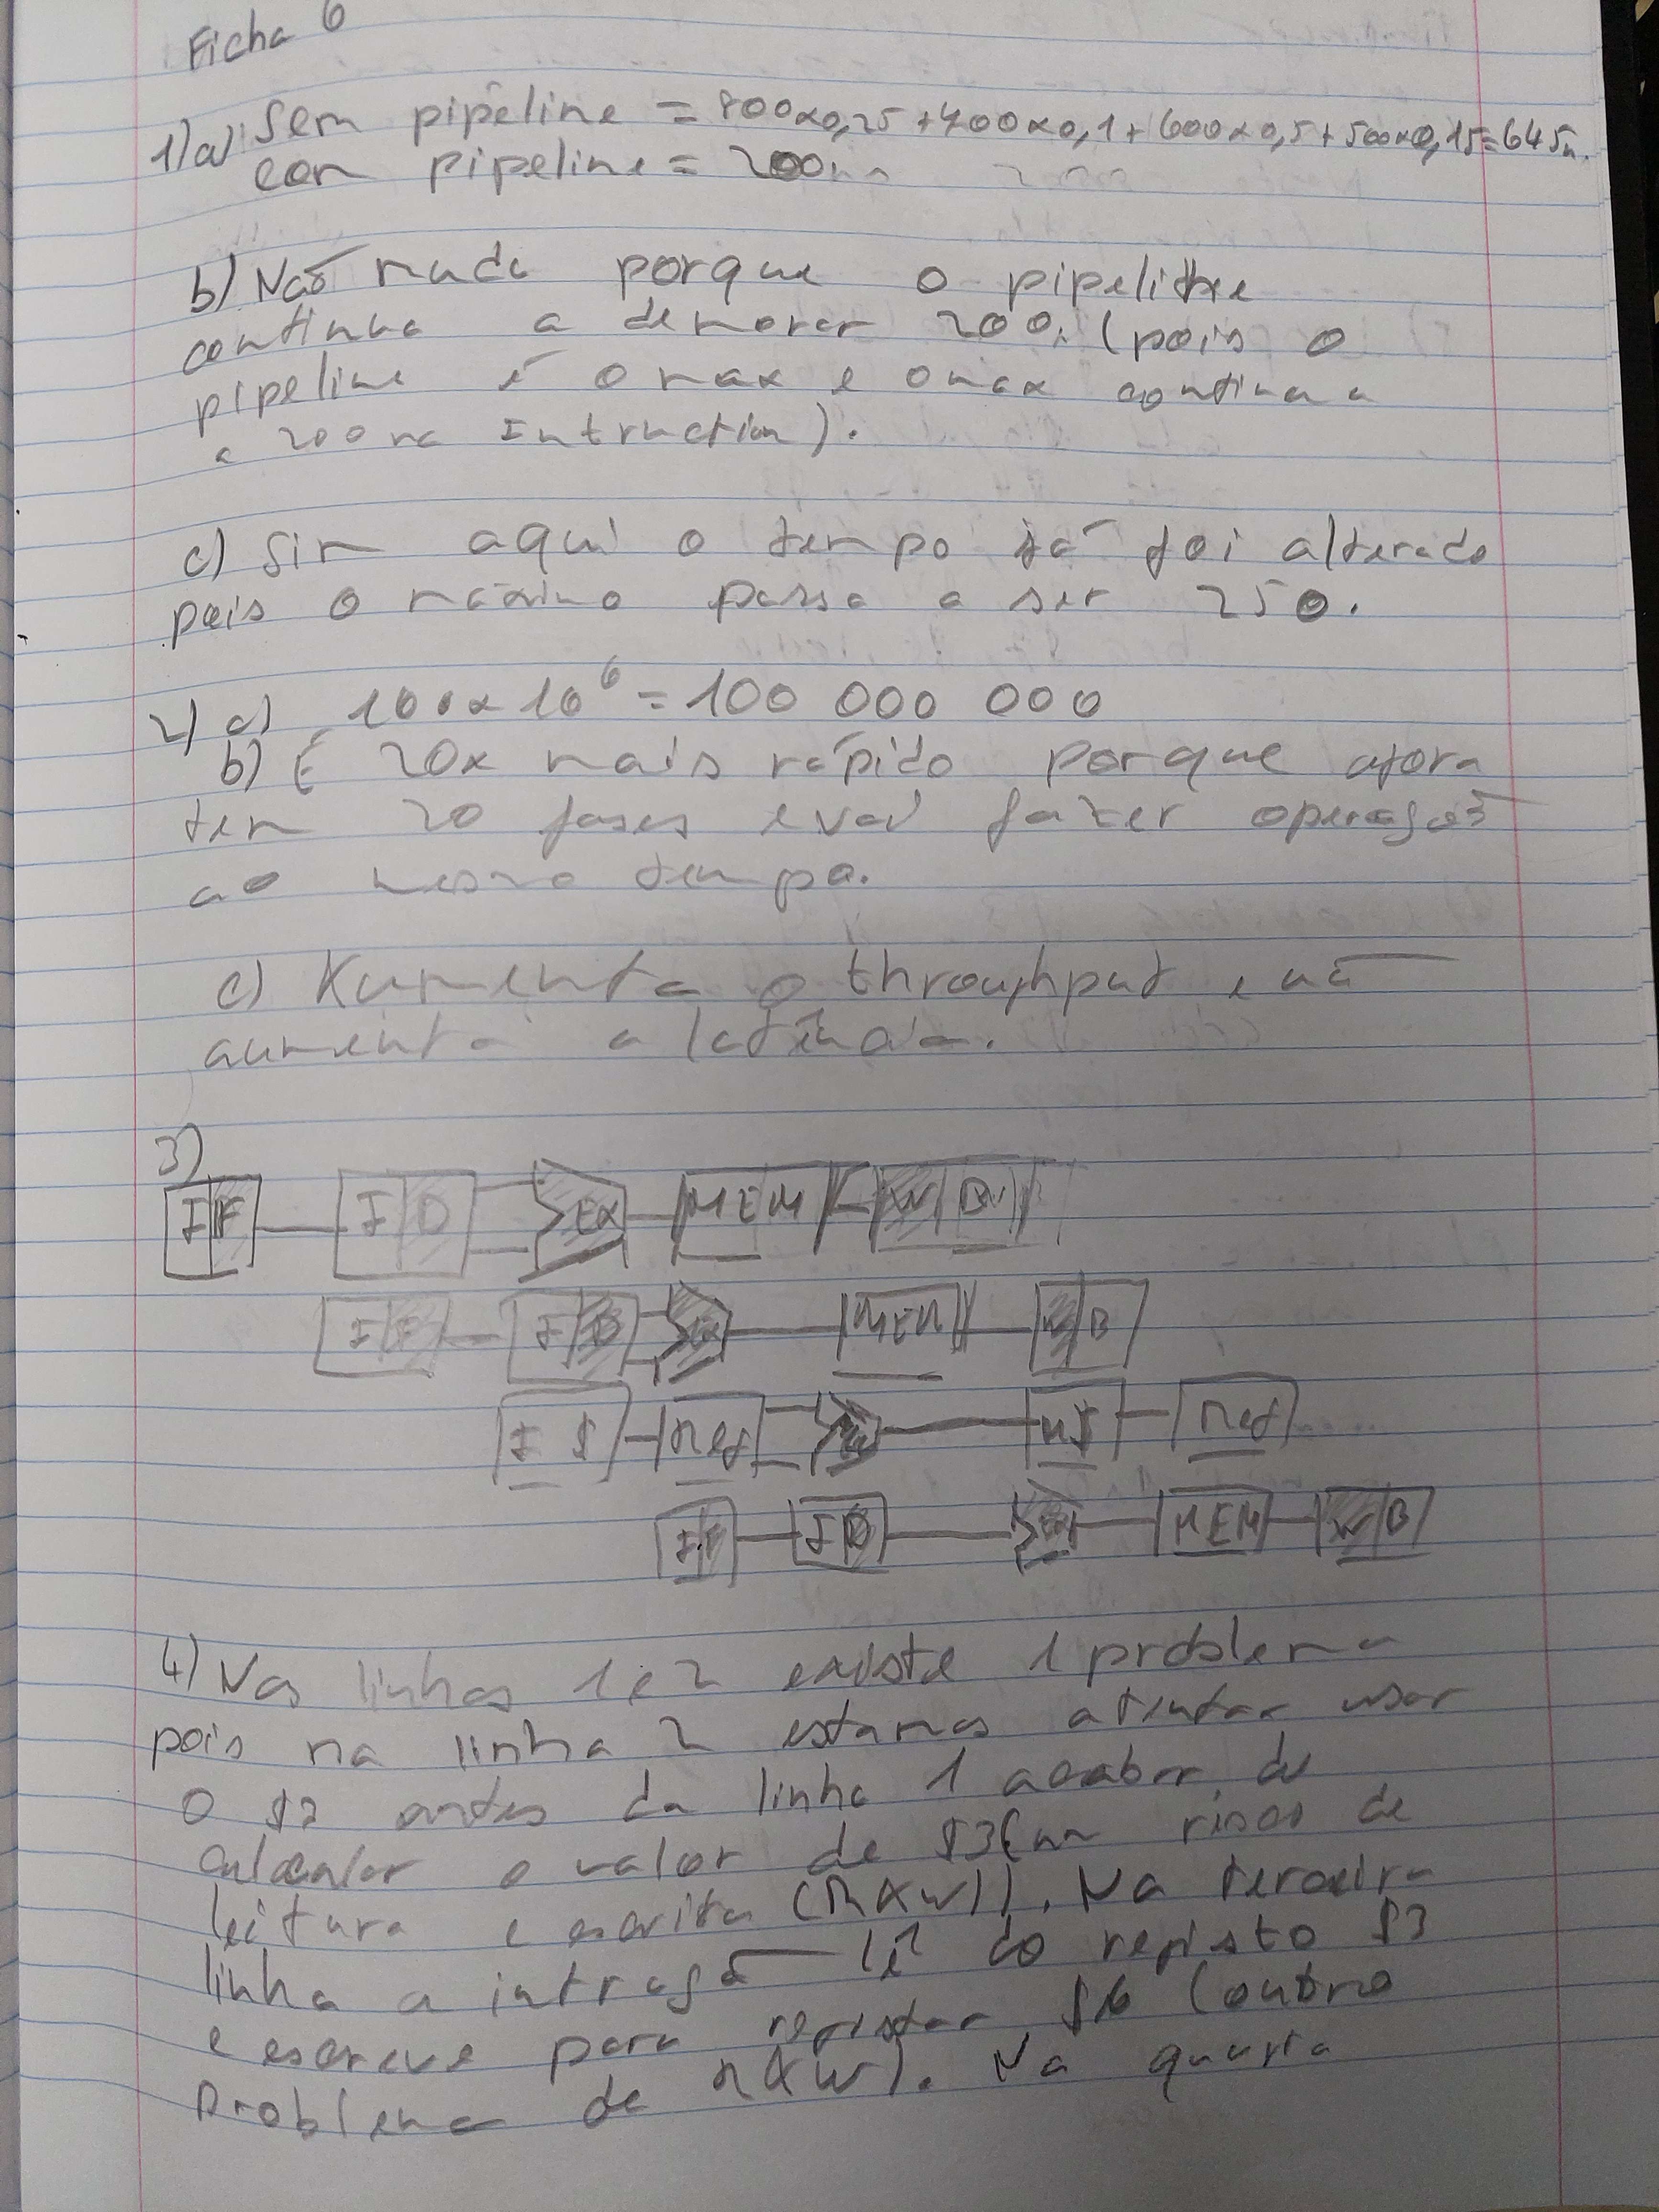 Ficha 6
1)a) Sem pipeline = 800x0,25 + 400x0,1 + 600x0,5 + 500x0,15 = 645n.
com pipeline = 200
b) Não muda porque o pipeline
continua a demorar 200. (pois o
pipeline é o max e o max continua
a 200 na Intruction).
c) Sim aqui o tempo já foi alterado
pois o máximo passa a ser 250.
2) a) 100x10^6 = 100 000 000
b) É 20x mais rápido porque agora
tem 20 fases e vai fazer operações
ao mesmo tempo.
c) Aumenta o throughput e não
aumenta a latência.
3)
IF ID EX MEM WB
IF ID EX MEM WB
I$ Reg M$ Reg
IF ID EX MEM WB
4) Nas linhas 1 e 2 existe 1 problema
pois na linha 2 estamos a tentar usar
o antes da linha 1 acabar de
calcular o valor de $3 (um risco de
leitura e escrita (RAW)). Na terceira
linha a lê do registo $3
e escreve para registar (outro
problema de RAW). Na quarta